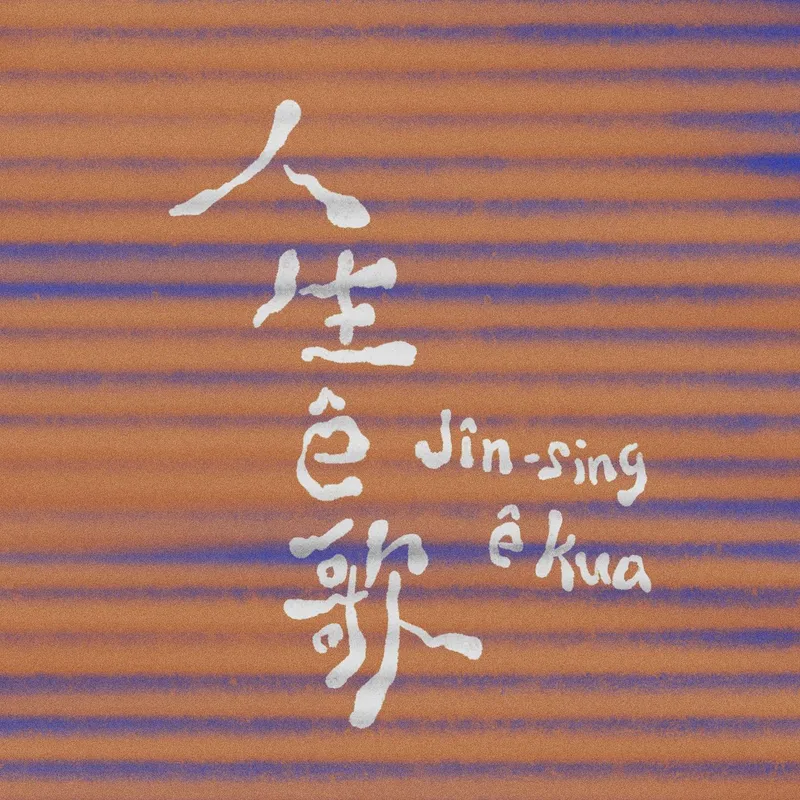 人生ê歌
Jîn-sing
ê kua